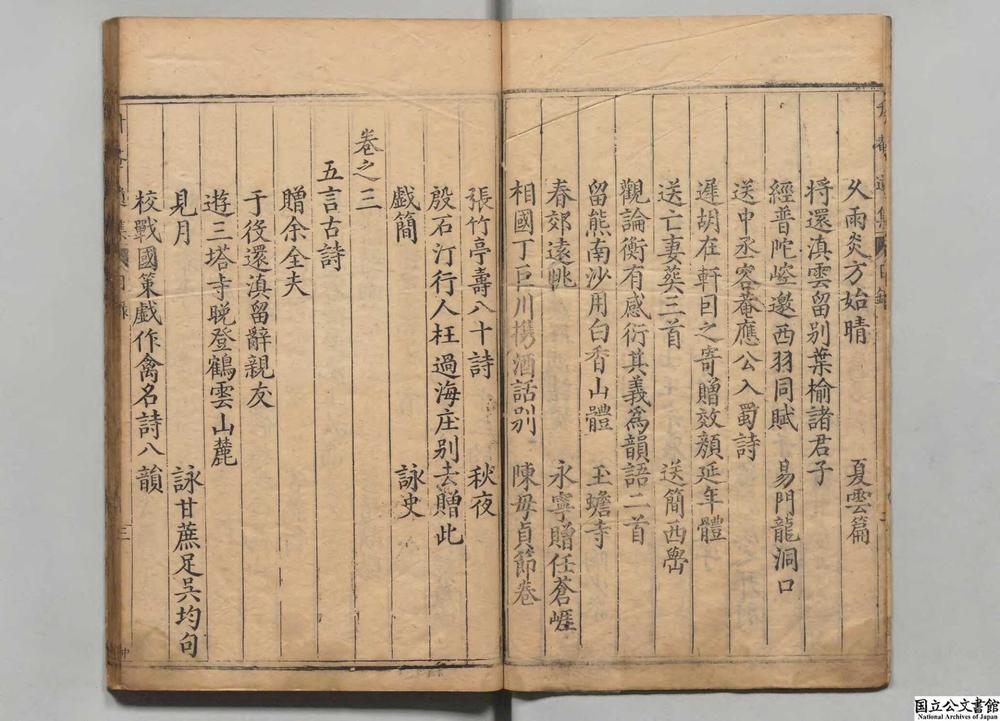 久雨炎方始晴　夏雲篇
將還滇雲留别葉榆諸君子
經普陀崆邀西羽同賦　易門龍洞口
送中丞容菴應公入蜀詩
遲胡在軒囙之寄贈效顔延年體
送亡妻葵三首　送簡西嶨
觀論衡有感衍其義爲韻語二首
留熊南沙用白香山體　玉蟾寺
春郊遠眺　永寧贈任蒼崕
相國丁巨川携酒話别　陳母貞節卷
張竹亭壽八十詩　秋夜
殷石汀行人枉過海庄别去贈此
戯簡　詠史
卷之三
五言古詩
贈余全夫
于役還滇留辭親友
遊三塔寺晚登鶴雲山麓
見月　詠甘蔗足吳均句
校戰國策戯作禽名詩八韻
三
国立公文書館
National Archives of Japan